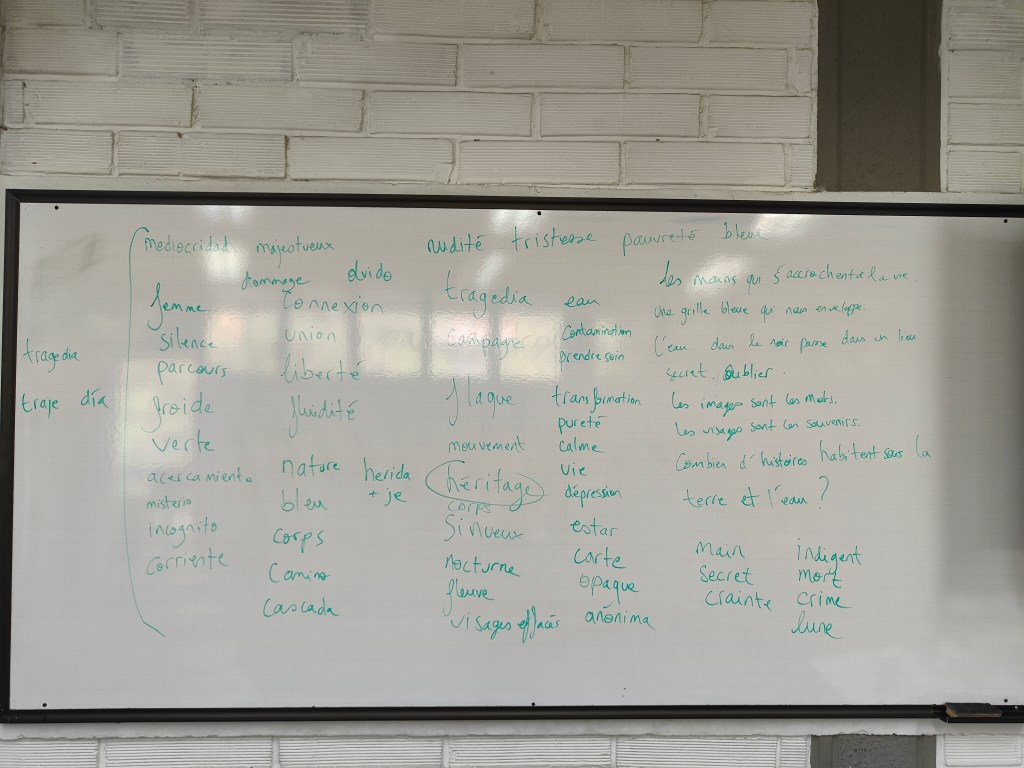 tragedia
traje día
mediocridad majestueux
hommage olvido
femme connexion
silence union
parcours liberté
froide fluidité
verte
acercamiento nature herida
misterio bleu + je
incognito corps
corriente camino
cascada
nudité tristesse pauvreté bleue
tragedia eau
campagne contamination
prendre soin
flaque transformation
pureté
mouvement calme
héritage vie
corps dépression
sinueux estar
nocturne carte
fleuve opaque
visages effacés anónima
Les mains qui s'accrochent à la vie.
Une grille bleue qui nous enveloppe.
L'eau dans le noir passe dans un lieu
secret. Oublier.
Les images sont les mots.
Les visages sont les souvenirs.
Combien d'histoires habitent sous la
terre et l'eau ?
main indigent
secret mort
crainte crime
lune